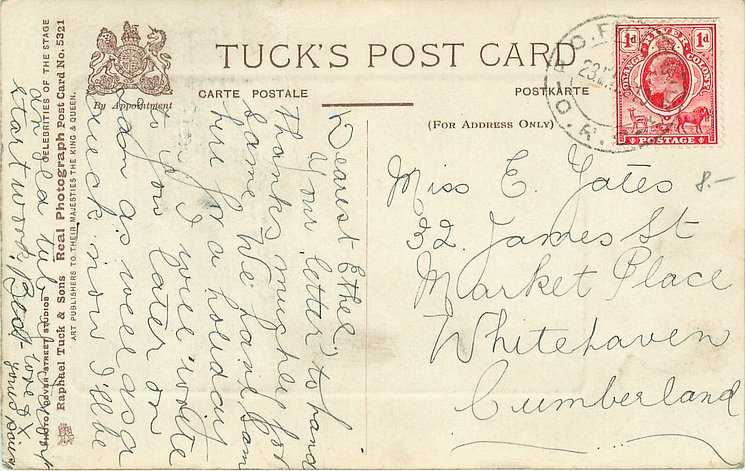 TUCK'S POST CARD
By Appointment
CARTE POSTALE
POSTKARTE
(FOR ADDRESS ONLY)
1d
1d
ORANGE RIVER COLONY
POSTAGE
8.-
Miss E. Yates
32. James St
Market Place
Whitehaven
Cumberland
Dearest Ethel
Your letter to hand
thanks muchly for
same. We have came
here for a holiday
I will write
to you later on
am as well as a
quick now I'll be
start work. Best love &
CELEBRITIES OF THE STAGE
Raphael Tuck & Sons Real Photograph Post Card No. 5321
ART PUBLISHERS TO THEIR MAJESTIES THE KING & QUEEN.
PHOTO DOVER STREET STUDIOS